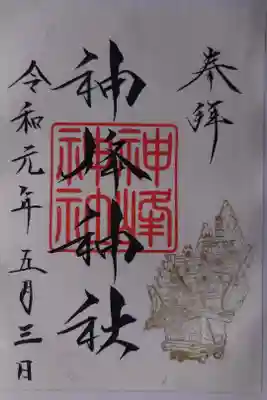 奉拝
神峰神社
神峰神社
令和元年五月三日